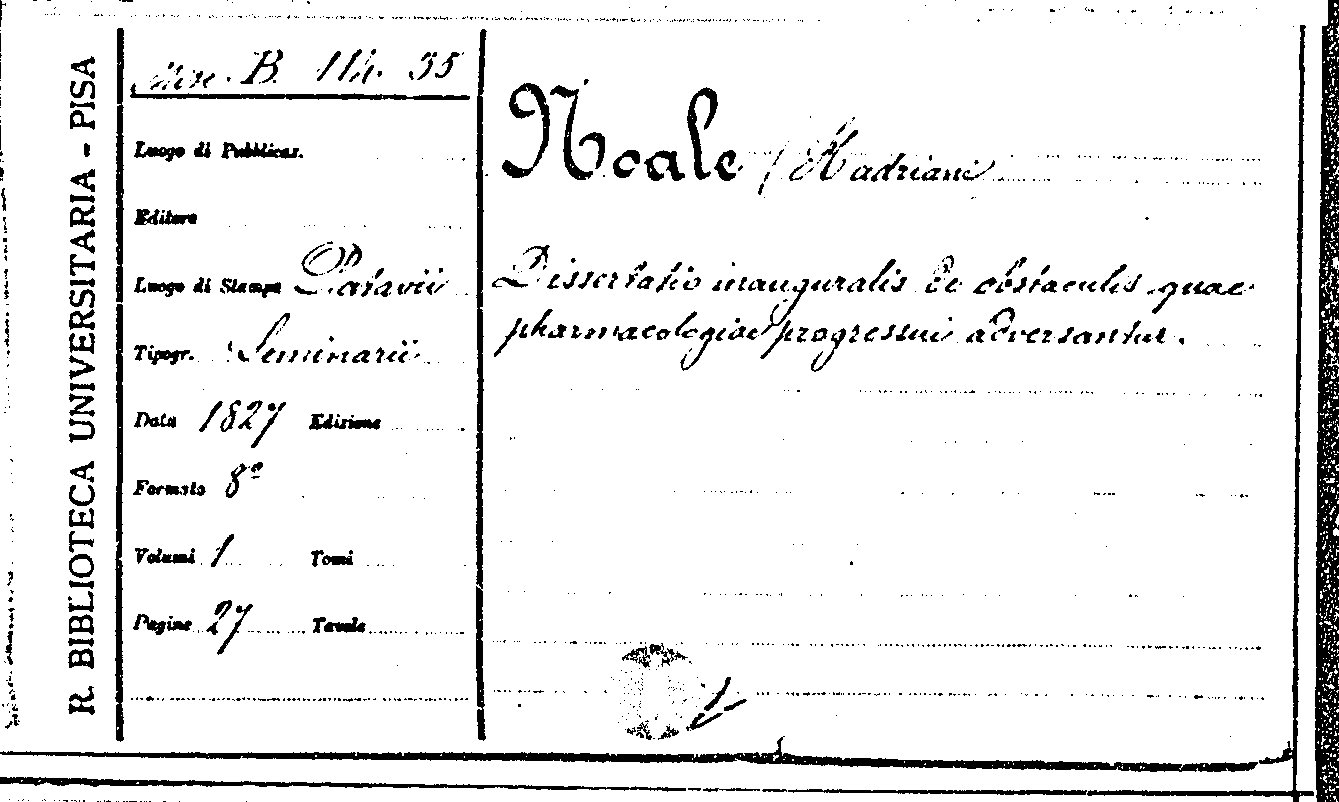 R. BIBLIOTECA UNIVERSITARIA - PISA
Misc. B. 114. 35
Luogo di Pubblicaz.
Editore
Luogo di Stampa Patavii
Tipogr. Seminarii
Data 1827 Edizione
Formato 8º
Volumi 1 Tomi
Pagine 27 Tavole
Noale (Hadriani)
Dissertatio inauguralis de obstaculis quae
pharmacologiae progressui adversantur.